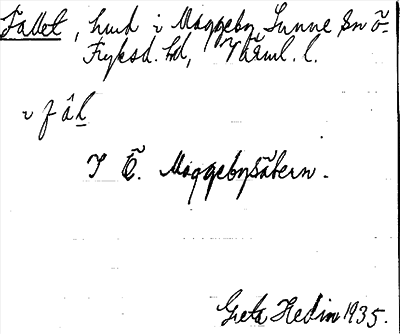 Fallet, hmd i Moggeby Sunne sn Ö.
Fryksd. hd, Värml. l.
i fâl̲
I Ö. Moggebysätern.
Greta Hedin 1935.